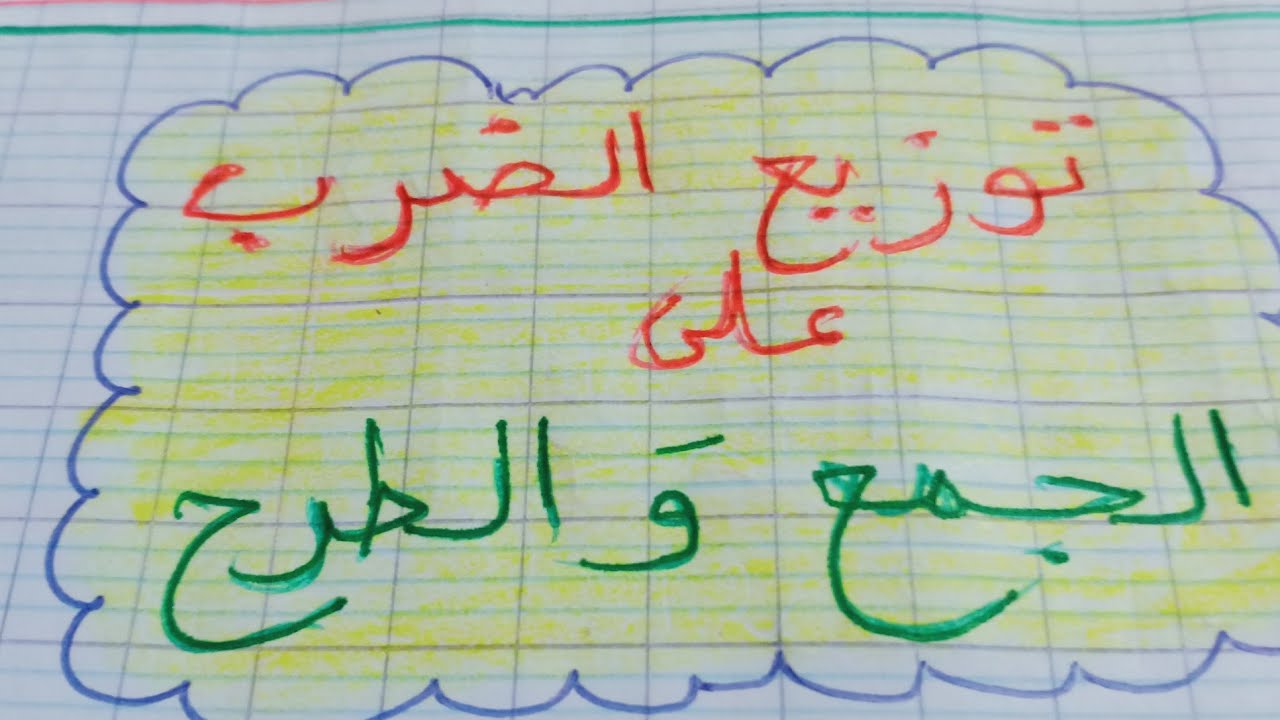 توزيع الضرب
على
الجمع وَالطرح